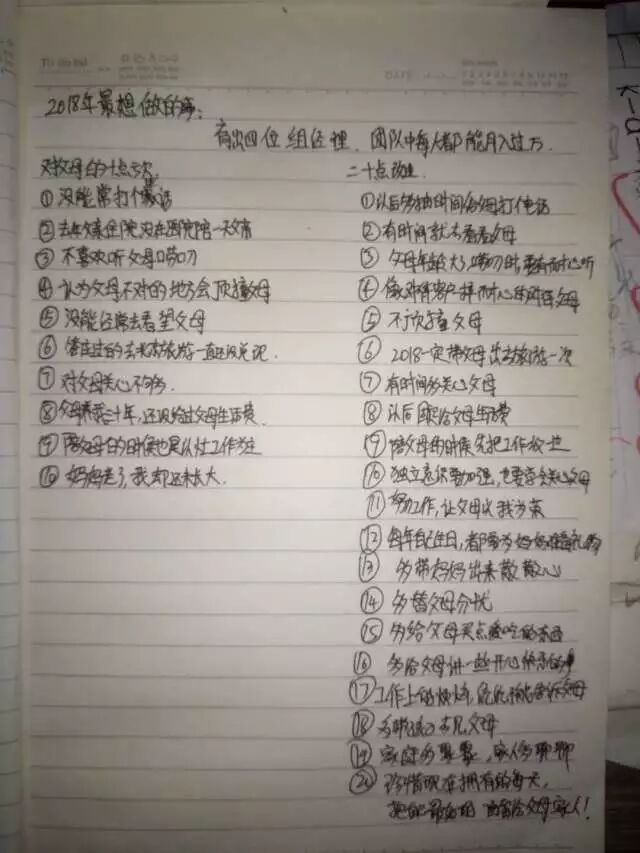 2018年最想做的事:
育出四位组经理、团队中每人都能月入过万
对父母的十点亏欠
二十点改进
①没能常打个电话
②去年妈妈住院没在医院陪一天
③不喜欢听父母唠叨
④认为父母不对的地方会顶撞父母
⑤没能经常去看望父母
⑥答应过的去旅游一直还没兑现
⑦对父母关心不够多
⑧父母养我三十年,还没给过父母生活费
⑨陪父母的时候也是以工作为主
⑩妈妈老了,我却还未长大
①以后多抽时间给父母打电话
②有时间就去看看父母
③父母年龄大了唠叨时,要有耐心听
④像对待客户一样耐心的对待父母
⑤不顶撞父母
⑥2018一定带父母出去旅游一次
⑦有时间多关心父母
⑧以后固定给父母生活费
⑨陪父母的时候先把工作放一边
⑩独立意识要加强,也要学会关心父母
⑪努力工作,让父母以我为荣
⑫每年自己生日,都要为妈妈准备礼物
⑬多带妈妈出来散散心
⑭多替父母分忧
⑮多给父母买点爱吃的东西
⑯多给父母讲一些开心快乐的事
⑰工作上的烦恼尽量不告诉父母
⑱多带孩子去见父母
⑲家庭多聚聚,家人多聊聊
⑳珍惜现在拥有的每天,
把 最好的 留给父母家人!